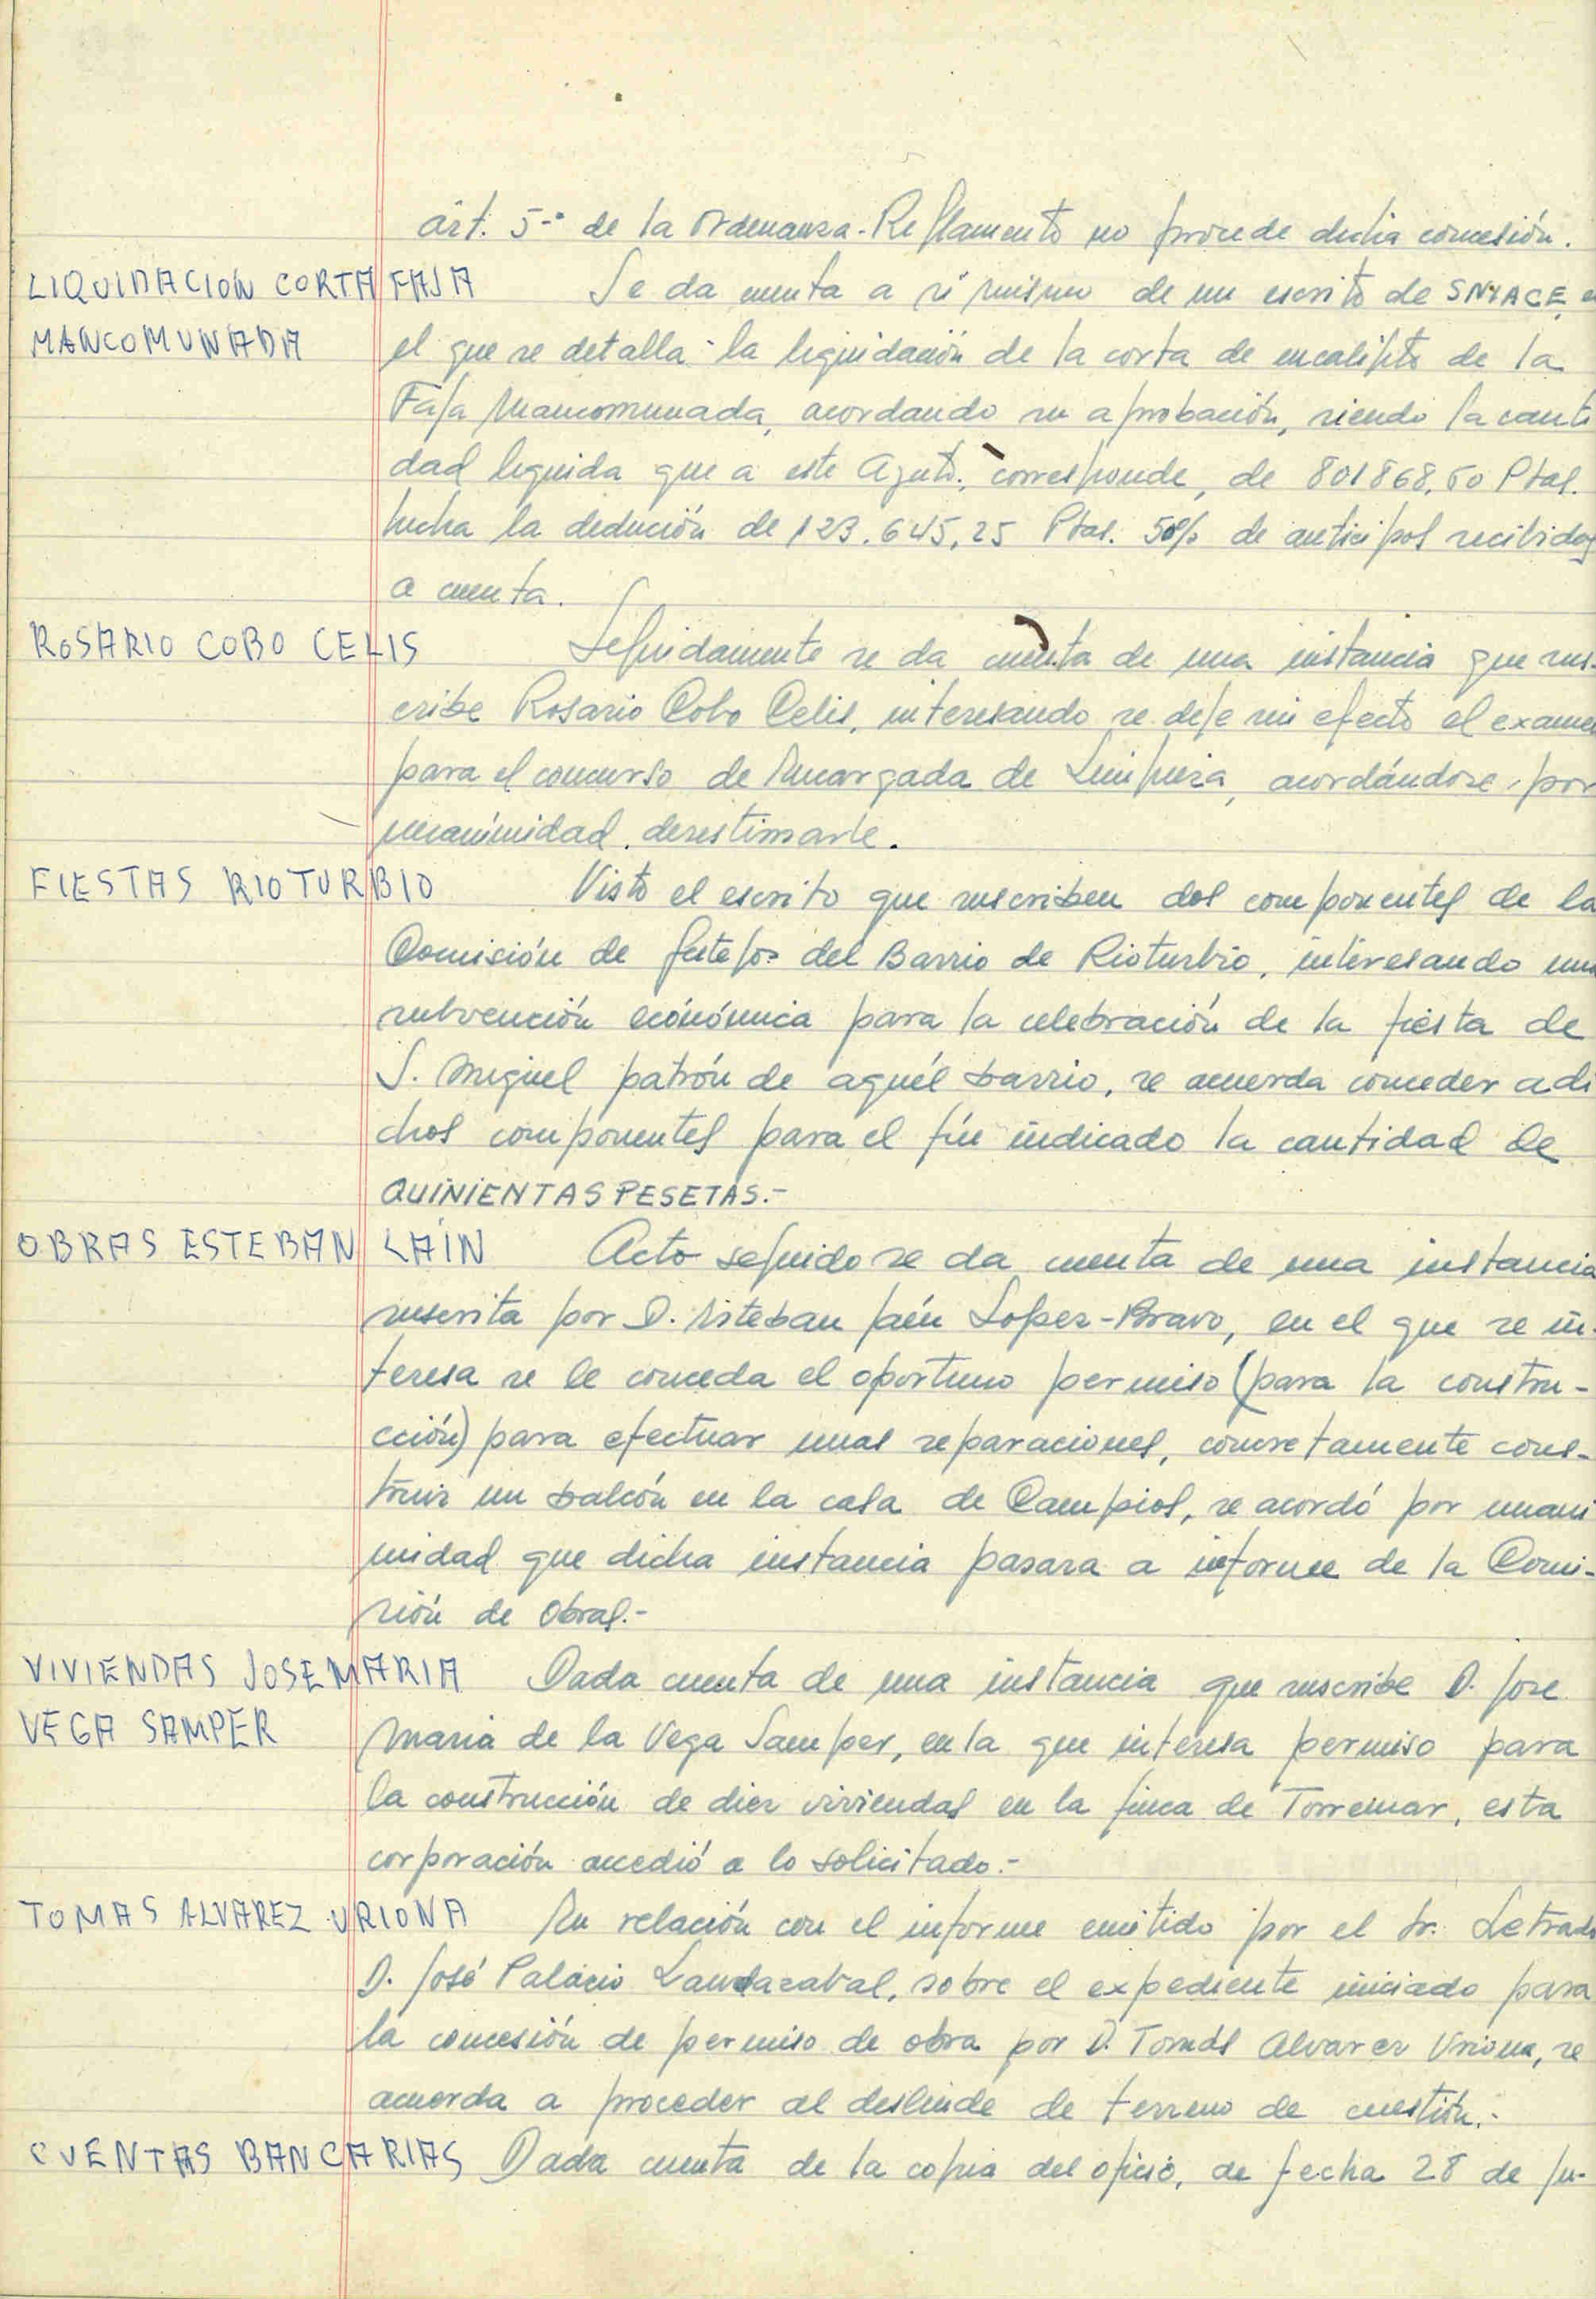 árt. 5-º de la Ordenanza-Reglamento no procede dicha concesión.
LIQUIDACION CORTA FAJA Se da cuenta a sí mismo de un escrito de SNIACE, en
MANCOMUNADA el que se detalla la liquidación de la corta de eucalipto de la
Faja Mancomunada, acordando su aprobación, siendo la canti
dad liquida que a este Ayuto. corresponde, de 801868,50 Ptas.
hecha la dedución de 123.645,25 Ptas. 50% de anticipos recibidos
a cuenta.
ROSARIO COBO CELIS Seguidamente se da cuenta de una instancia que sus-
cribe Rosario Cobo Celis, interesando se deje sin efecto el examen
para el concurso de Encargada de Limpieza, acordándose, por
unanimidad, desestimarle.
FIESTAS RIOTURBIO Visto el escrito que suscriben dos componentes de la
Comisión de festejos del Barrio de Rioturbio, interesando una
subvención económica para la celebración de la fiesta de
S. Miguel patrón de aquél barrio, se acuerda conceder a di
chos componentes para el fín indicado la cantidad de
QUINIENTAS PESETAS.-
OBRAS ESTEBAN LAÍN Acto seguido se da cuenta de una instancia
suscrita por D. Esteban Laén Lopez-Bravo, en el que se in-
teresa se le conceda el oportuno permiso (para la constru-
cción) para efectuar unas reparaciones, concretamente cons-
truir un balcón en la casa de Campios, se acordó por unani
midad que dicha instancia pasara a informe de la Comi-
sión de Obras.-
VIVIENDAS JOSE MARIA Dada cuenta de una instancia que suscribe D. Jose
VEGA SAMPER Maria de la Vega Samper, en la que interesa permiso para
la construcción de diez viviendas en la finca de Torremar, esta
corporación accedió a lo solicitado.-
TOMAS ALVAREZ URIONA En relación con el informe emitido por el Sr. Letrado
D. José Palacio Landazabal, sobre el expediente iniciado para
la concesión de permiso de obra por D. Tomás Alvarez Uriona, se
acuerda a proceder al deslinde de terreno de cuestión.-
CUENTAS BANCARIAS Dada cuenta de la copia del oficio, de fecha 28 de Ju-